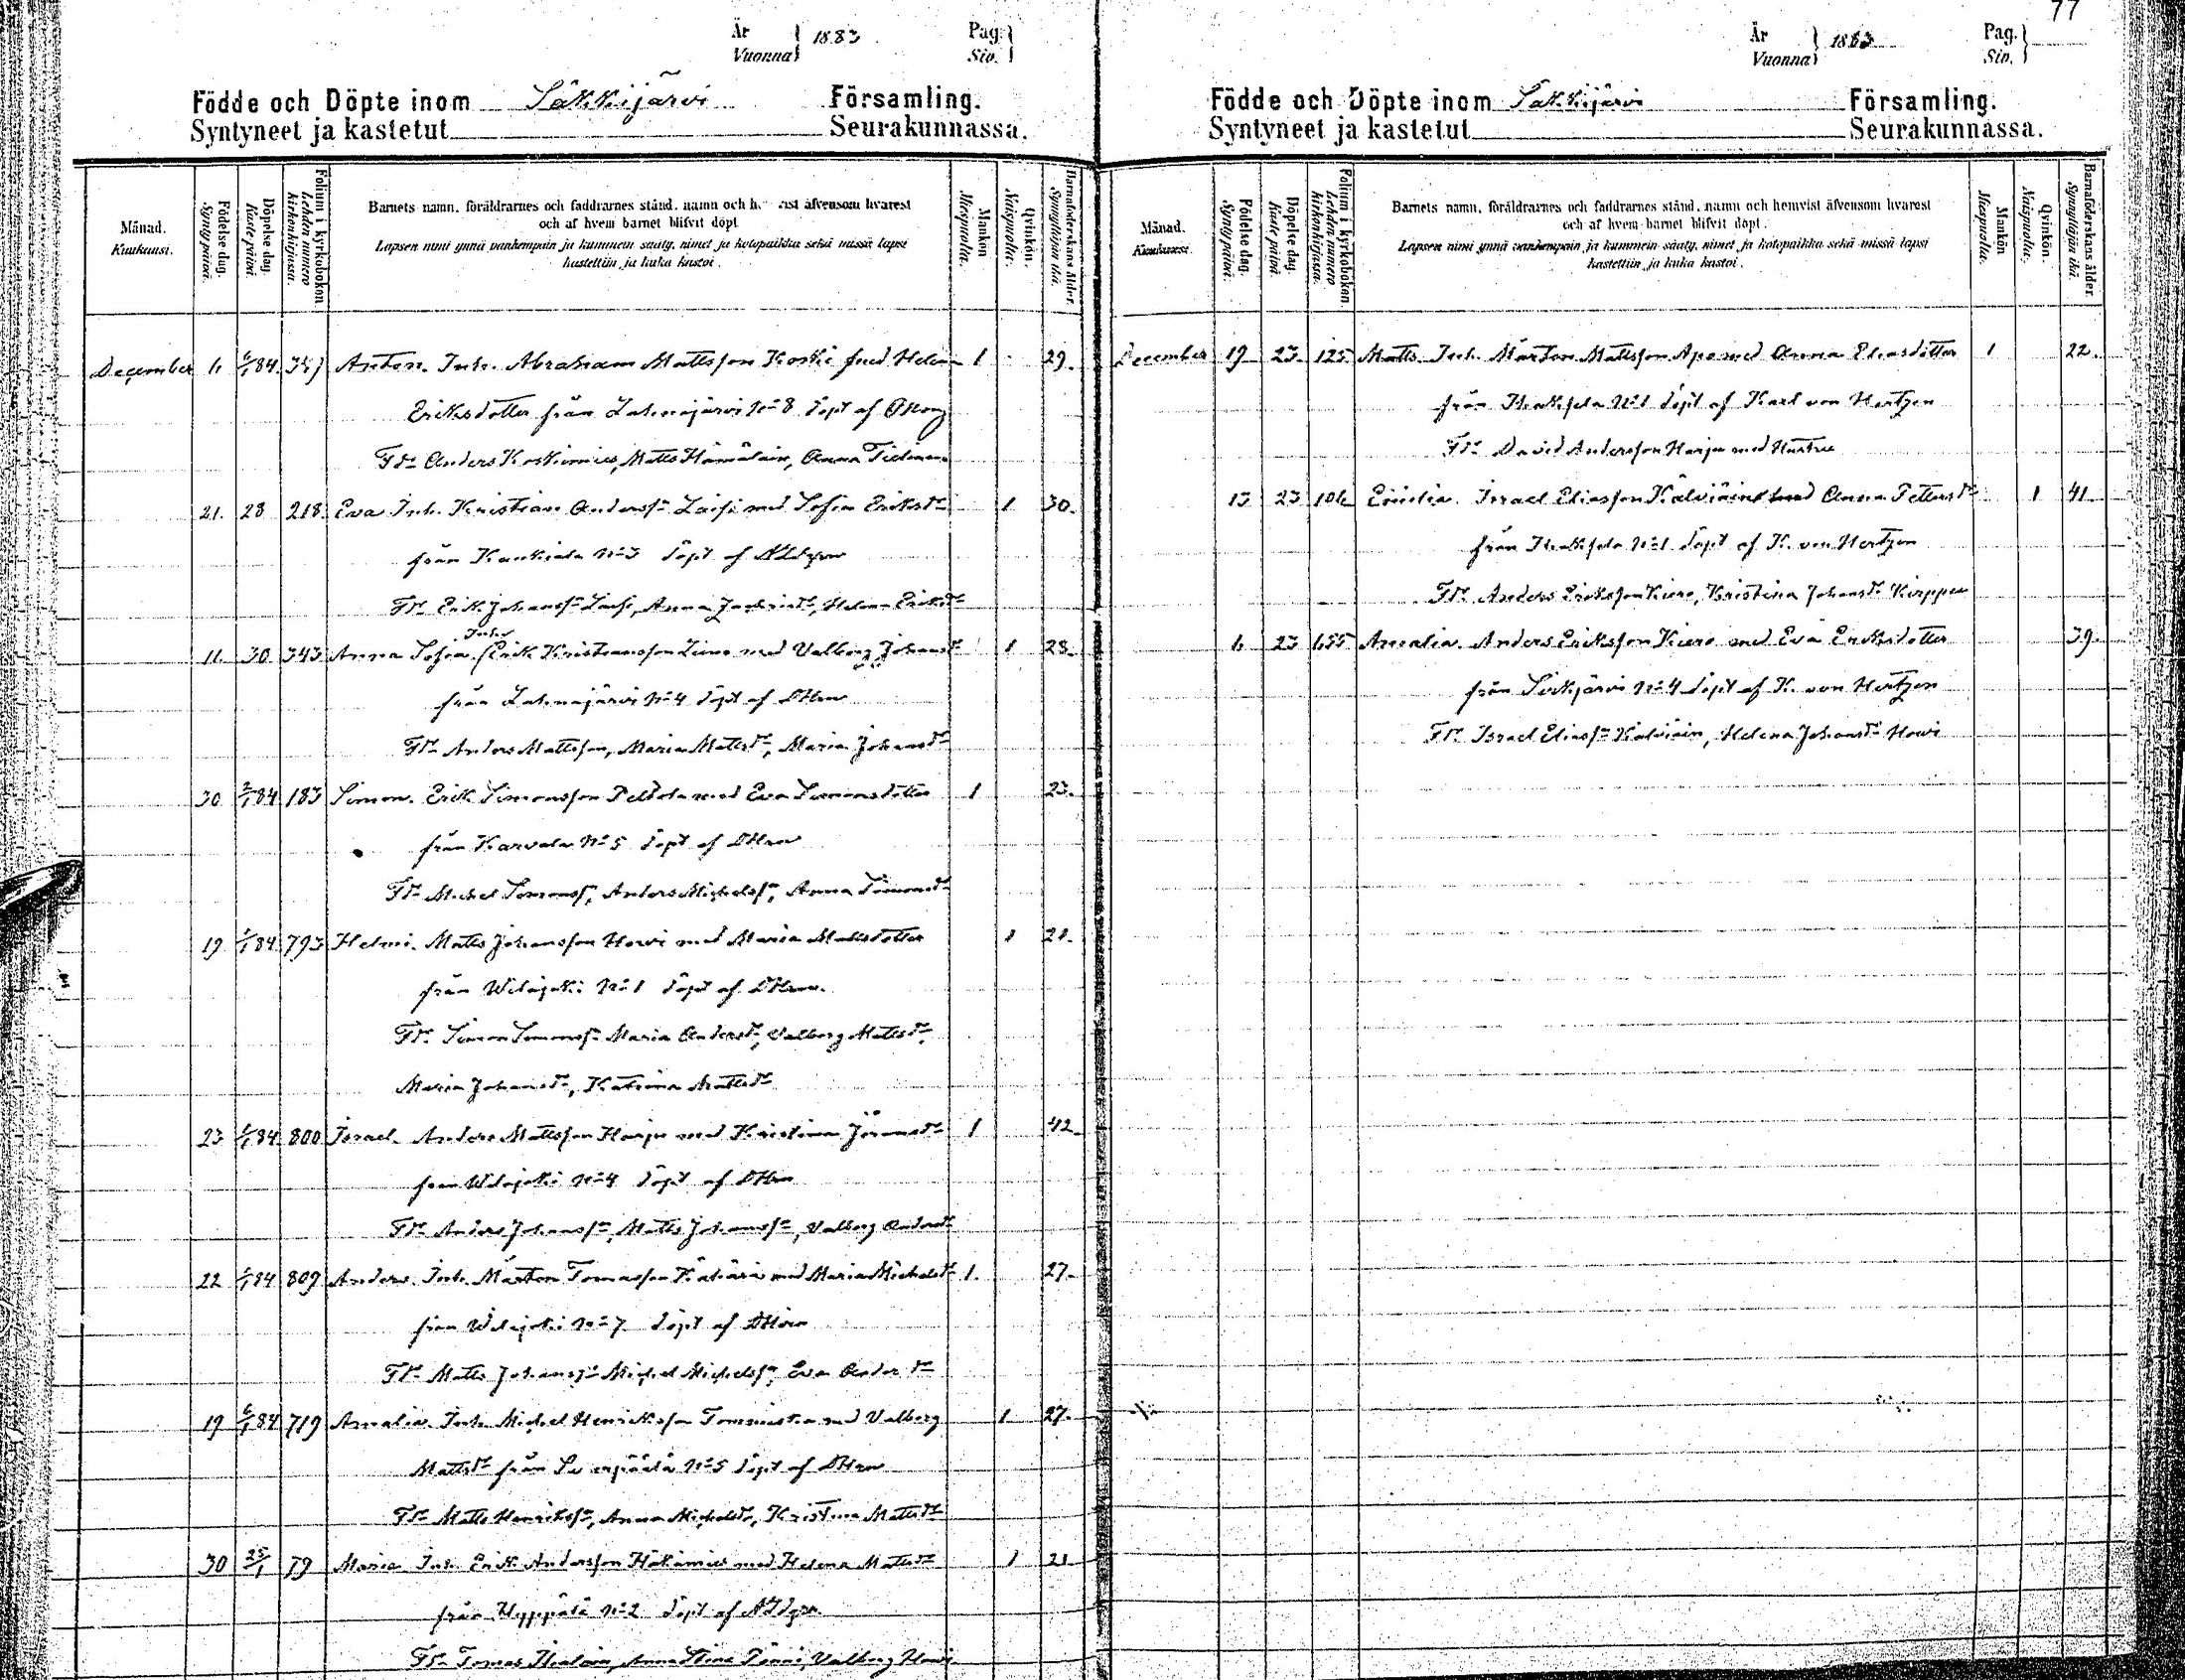 År Vuonna } 1883. Pag. Siv. }
Födde och Döpte inom Säkkijärvi Församling.
Syntyneet ja kastetut Seurakunnassa.
Månad. Kuukausi.
Födelse dag. Syntypäivä.
Döpelse dag. Kastepäivä.
Folium i kyrkoboken. Lehden numero kirkonkirjassa.
Barnets namn, föräldrarnes och faddrarnes stånd, namn och h ist äfvensom hvarest
och af hvem barnet blifvit döpt
Lapsen nimi ynnä vanhempain ja kummein sääty, nimet ja kotopaikka sekä missä lapsi
kastettiin ja kuka kastoi.
Mankön Miespuolia.
Qvinkön. Naispuolia.
Barnaföderskans ålder. Synnyttäjän ikä.
December 6 6/1 84 Anton. Inh. Abraham Mattsson Koski med Helena 1 29.
Eriksdotter från Lahnajärvi No 8 döpt af
Fdr Anders Koskimies, Matts Hämäläin, Anna
21. 28 218 Eva Inh. Kristian Anderss. Laihi med Sofia Eriksdr 1 30.
från Kaukiala No 3 döpt af
Fdr Erik Johanss. Anna Helena Eriksdr
11. 30 343 Anna Sofia. Inh. Erik Kristiansson med Valborg Johansdr 1 28.
från Lahnajärvi No 4 döpt af
Fdr Anders Mattsson, Maria Mattsdr, Maria Johansdr
30. 2/1 84 183 Simon. Erik Simonsson Peltola med Eva Simonsdotter 1 23.
från Karvala No 5 döpt af
Fdr Michel Simonss, Anders Michelss, Anna Simonsdr
19. 6/1 84 793 Helmi. Matts Johansson Howi med Maria Mattsdotter 1 21.
från Wilajoki No 1 döpt af
Fdr Simon Simonss Maria Andersdr, Valborg Mattsdr,
Maria Johansdr, Katrina Mattsdr
23 6/1 84 800 Israel. Anders Mattsson Harju med Kristina Jöransdr 1 42.
från Wilajoki No 4 döpt af
Fdr Anders Johanss, Matts Johanss, Valborg Andersdr
22 6/1 84 809 Anders. Inh. Mårten Tomasson Kähärä med Maria Michelsdr 1. 27.
från Wilajoki No 7 döpt af
Fdr Matts Johanss Michel Michelss, Eva Andersdr
19 6/1 84 719 Amalia. Inh. Michel Henriksson Tommiska med Valborg 1. 27.
Mattsdr från No 5 döpt af
Fdr Matts Henrikss, Anna Michelsdr, Kristina Mattsdr
30 25/1 79 Maria Inh. Erik Andersson Häkämies med Helena Mattsdr 1 21
från Hyppälä No 2 döpt af
Fdr Tomas Anna Stina Pänni, Valborg Howi
77
År Vuonna } 1883 Pag. Siv. }
Födde och Döpte inom Säkkijärvi Församling.
Syntyneet ja kastetut Seurakunnassa.
Månad. Kuukausi.
Födelse dag. Syntypäivä.
Döpelse dag. Kastepäivä.
Folium i kyrkoboken. Lehden numero kirkonkirjassa.
Barnets namn, föräldrarnes och faddrarnes stånd, namn och hemvist äfvensom hvarest
och af hvem barnet blifvit döpt.
Lapsen nimi ynnä vanhempain ja kummein sääty, nimet ja kotopaikka sekä missä lapsi
kastettiin ja kuka kastoi.
Mankön Miespuolia.
Qvinkön. Naispuolia.
Barnaföderskans ålder. Synnyttäjän ikä.
December 19 23. 125 Matts. Inh. Mårten Mattsson Apo med Anna Eliasdotter 1 22.
från No 1 döpt af Karl von Hertzen
Fdr David Andersson Harju med Hustru
13 23 106 Emilia. Israel Eliasson Kälviäin med Anna Pettersdr 1 41.
från No 1 döpt af K. von Hertzen
Fdr Anders Eriksson Kiero, Kristina Johansdr Kirppu
6 23 655 Amalia. Anders Eriksson Kiero med Eva Eriksdotter 39.
från Sirkjärvi No 4 döpt af K. von Hertzen
Fdr Israel Eliass. Kälviäin, Helena Johansdr Howi